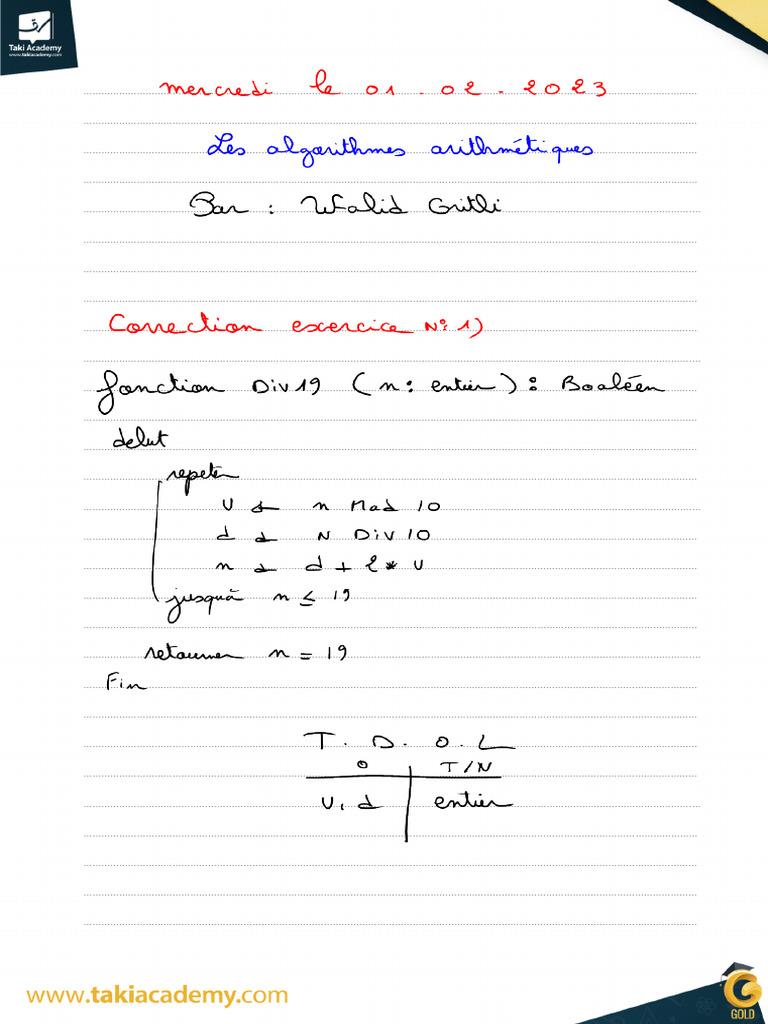 Taki Academy
www.takiacademy.com
mercredi le 01.02.2023
Les algorithmes arithmétiques
Par : Walid Gritli
Correction exercice N°: 1)
fonction Div19 (n: entier) : Booléen
debut
repeter
U ← n Mod 10
d ← N Div 10
n ← d + 2 * U
jusqu'à n ≤ 19
retourner n = 19
Fin
T.D.O.L
O T/N
U, d entier
www.takiacademy.com
GOLD